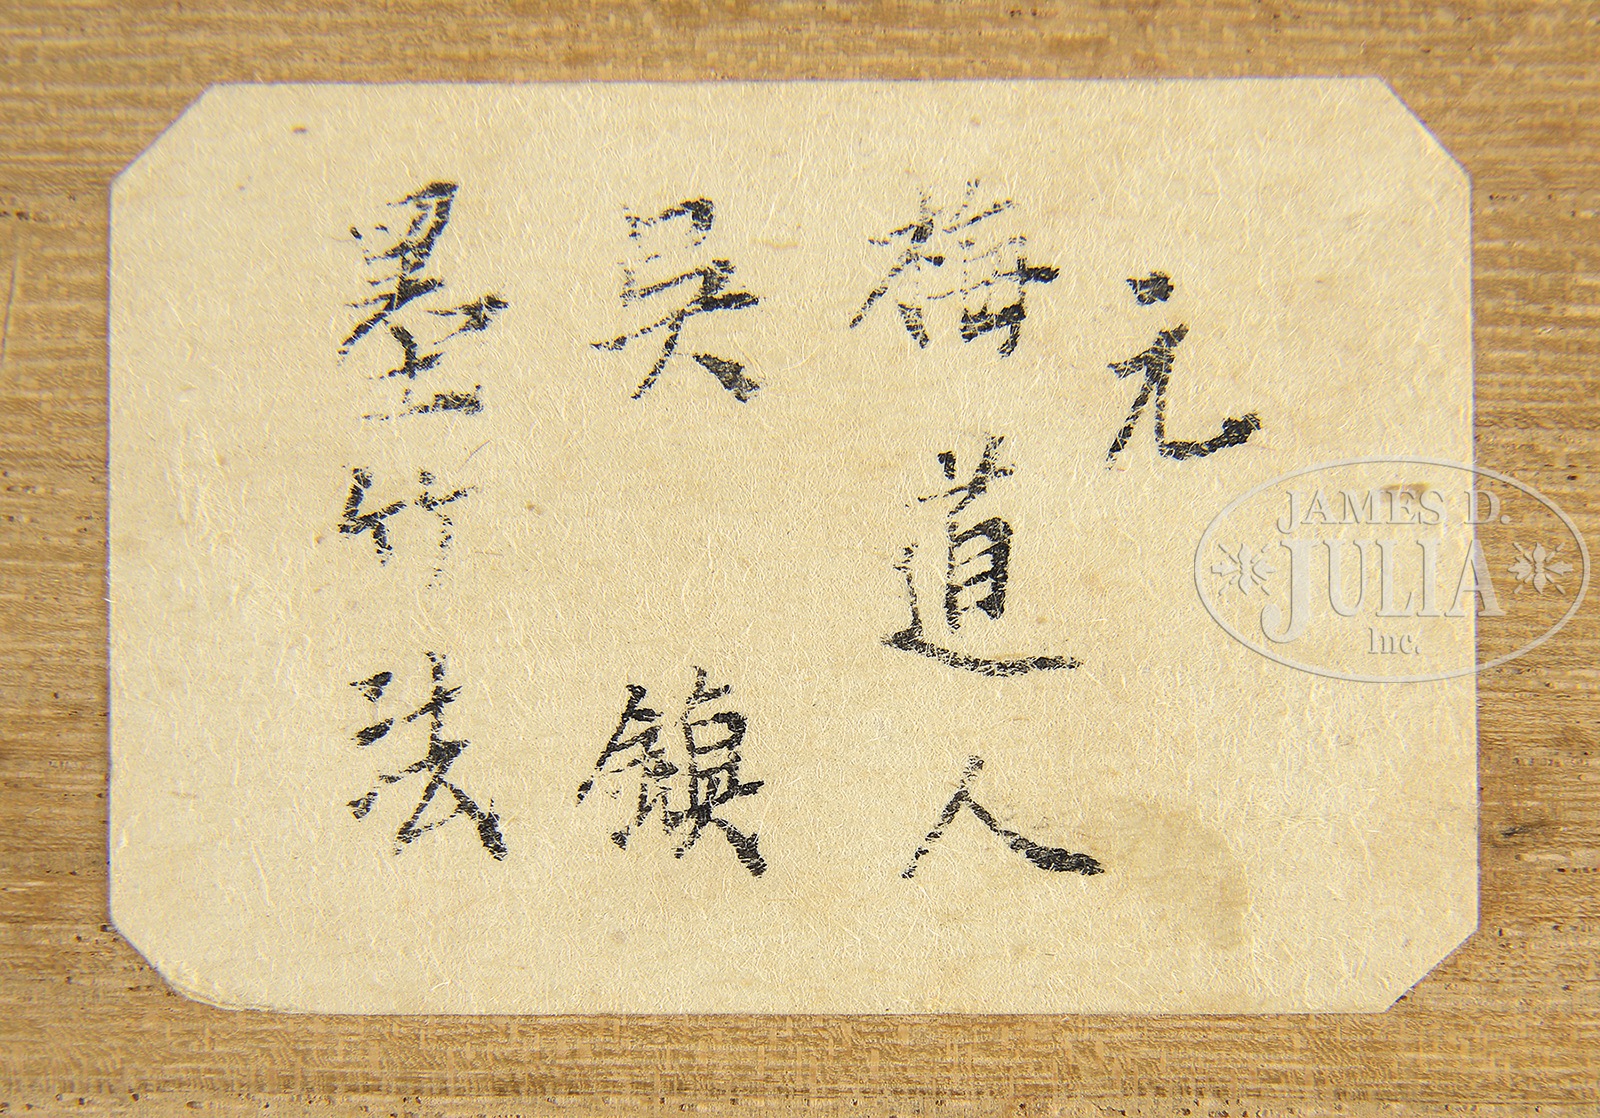 元
梅道人
吳鎮
墨竹法
JAMES D.
JULIA
Inc.